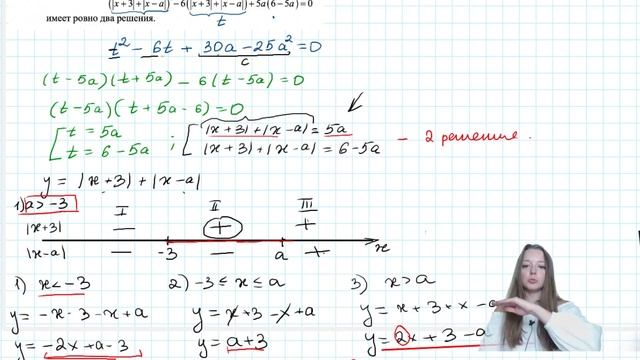 (|x+3|+|x−a|)² −6(|x+3|+|x−a|)+5a(6−5a)=0
t
имеет ровно два решения.
t² − 6t + 30a − 25a² = 0
c
(t − 5a)(t + 5a) − 6(t − 5a) = 0
(t − 5a)(t + 5a − 6) = 0
[ t = 5a ; [ |x+3| + |x−a| = 5a
t = 6 − 5a |x+3| + |x−a| = 6−5a − 2 решение.
y = |x+3| + |x−a|
1) a > −3 I II III
|x+3| − + +
−3 a x
|x−a| − − +
1) x < −3 2) −3 ≤ x ≤ a 3) x > a
y = −x − 3 − x + a y = x + 3 − x + a y = x + 3 + x − a
y = −2x + a − 3 y = a + 3 y = 2x + 3 − a